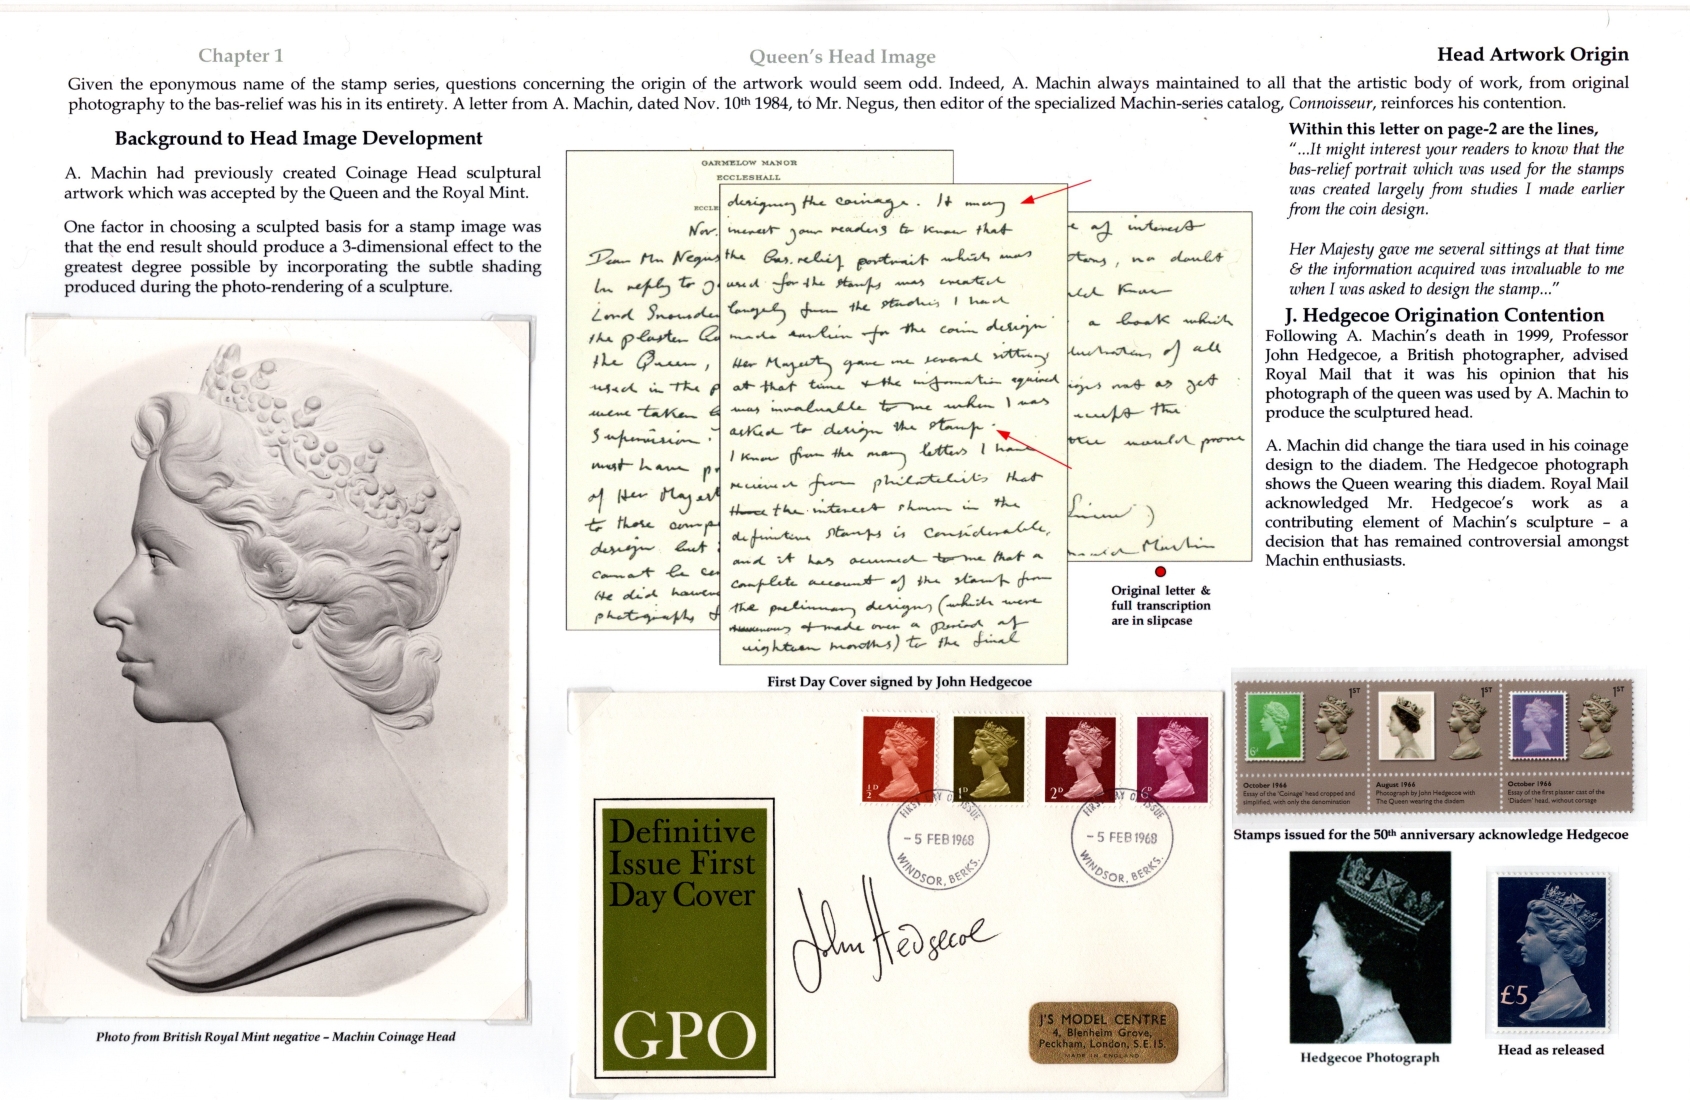 Chapter 1
Queen's Head Image
Head Artwork Origin
Given the eponymous name of the stamp series, questions concerning the origin of the artwork would seem odd. Indeed, A. Machin always maintained to all that the artistic body of work, from original
photography to the bas-relief was his in its entirety. A letter from A. Machin, dated Nov. 10th 1984, to Mr. Negus, then editor of the specialized Machin-series catalog, Connoisseur, reinforces his contention.
Background to Head Image Development
A. Machin had previously created Coinage Head sculptural
artwork which was accepted by the Queen and the Royal Mint.
One factor in choosing a sculpted basis for a stamp image was
that the end result should produce a 3-dimensional effect to the
greatest degree possible by incorporating the subtle shading
produced during the photo-rendering of a sculpture.
Photo from British Royal Mint negative – Machin Coinage Head
GARMELOW MANOR
ECCLESHALL
ECCLE
Nov.
Dear Mr Negus
In reply to
Lord Snowdon
the plaster
the Queen,
used in the p
were taken
Supervision.
must have p
of Her Majest
to those comp
design but
cannot be
He did howev
photographs
designing the coinage. It may
interest your readers to know that
the Bas.relief portrait which was
used for the stamps was created
largely from the studies I had
made earlier for the coin design
Her Majesty gave me several sittings
at that time & the information aquired
was invaluable to me when I was
asked to design the stamp.
I know from the many letters I have
recieved from philatelists that
the interest shown in the
definitive stamps is considerable,
and it has occurred to me that a
complete account of the stamp from
the preliminary designs (which were
made over a period of
eighteen months) to the final
e of interest
no doubt
know
a book which
of all
not as yet
the
would prove
Machin
Original letter &
full transcription
are in slipcase
Within this letter on page-2 are the lines,
"...It might interest your readers to know that the
bas-relief portrait which was used for the stamps
was created largely from studies I made earlier
from the coin design.
Her Majesty gave me several sittings at that time
& the information acquired was invaluable to me
when I was asked to design the stamp..."
J. Hedgecoe Origination Contention
Following A. Machin's death in 1999, Professor
John Hedgecoe, a British photographer, advised
Royal Mail that it was his opinion that his
photograph of the queen was used by A. Machin to
produce the sculptured head.
A. Machin did change the tiara used in his coinage
design to the diadem. The Hedgecoe photograph
shows the Queen wearing this diadem. Royal Mail
acknowledged Mr. Hedgecoe's work as a
contributing element of Machin's sculpture – a
decision that has remained controversial amongst
Machin enthusiasts.
First Day Cover signed by John Hedgecoe
½D
1D
2D
6D
FIRST DAY OF ISSUE
-5 FEB 1968
WINDSOR, BERKS.
FIRST DAY OF ISSUE
-5 FEB 1968
WINDSOR, BERKS.
Definitive
Issue First
Day Cover
GPO
John Hedgecoe
J'S MODEL CENTRE
4, Blenheim Grove,
Peckham, London, S.E.15.
MADE IN ENGLAND
6d
1ST
1ST
1ST
October 1966
Essay of the 'Coinage' head cropped and
simplified, with only the denomination
August 1966
Photograph by John Hedgecoe with
The Queen wearing the diadem
October 1966
Essay of the first plaster cast of the
'Diadem' head, without corsage
Stamps issued for the 50th anniversary acknowledge Hedgecoe
Hedgecoe Photograph
£5
Head as released